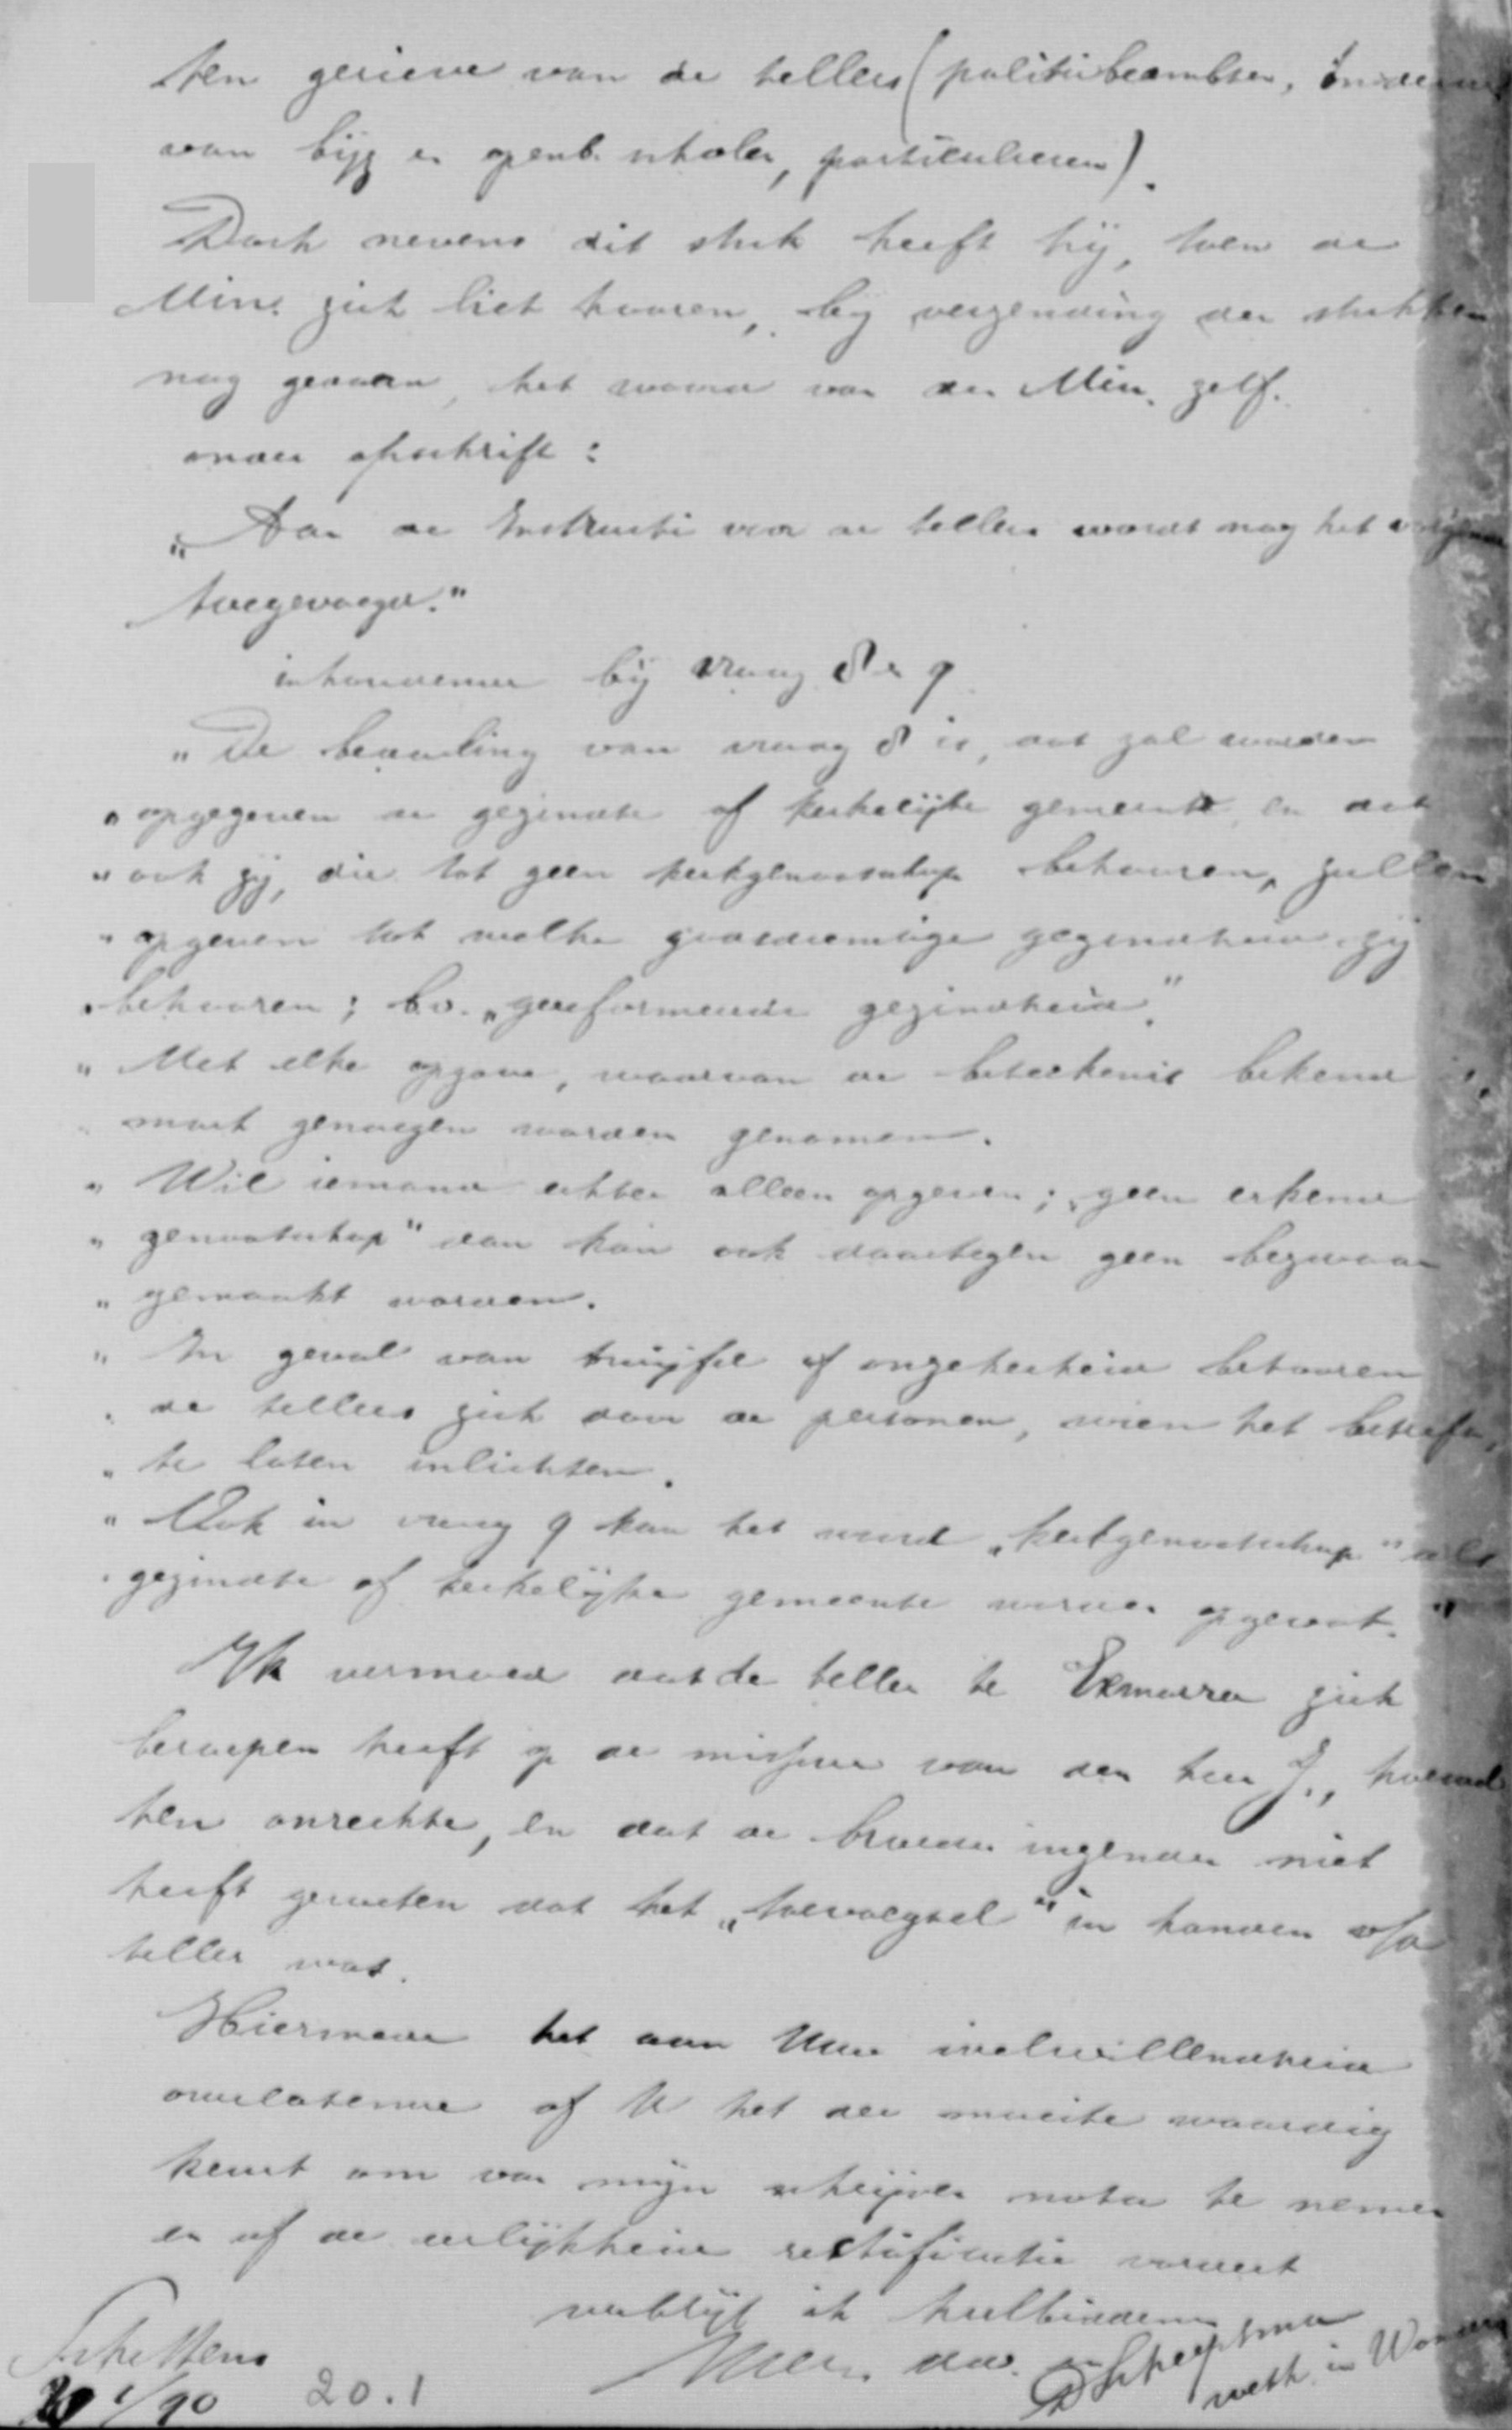 ten gerieve van de tellers (politiebeambten,
van bijz en openb. scholen, particulieren).
Doch nevens dit stuk heeft hij, toen de
Min. zich liet hooren, bij verzending der stukken
nog gedaan, het woord van den Min. zelf.
onder opschrift:
"Aan de Instructie voor de tellers wordt nog het volgende
toegevoegd."
inhoudende bij vraag 8 en 9
"De bedoeling van vraag 8 is, dat zal worden
"opgegeven de gezindte of kerkelijke gemeente, en dat
"ook zij, die tot geen kerkgenootschap behooren, zullen
"opgeven tot welke godsdienstige gezindheid zij
"behooren; bv. "gereformeerde gezindheid".
"Met elke opgave, waarvan de beteekenis bekend is,
"moet genoegen worden genomen.
"Wil iemand echter alleen opgeven; "geen erkend
"genootschap" dan kan ook daartegen geen bezwaar
"gemaakt worden.
"In geval van twijfel of onzekerheid behooren
"de tellers zich door de personen, wien het betreft,
"te laten inlichten.
"Ook in vraag 9 kan het woord "kerkgenootschap" als
"gezindte of kerkelijke gemeente worden opgevat."
Ik vermoed dat de teller te Exmorra zich
beroepen heeft op de missive van den heer J., hoewel
ten onrechte, en dat de broeder inzender niet
heeft geweten dat het "toevoegsel" in handen v/d
teller was.
Hiermede het aan Uwe welwillendheid
overlatende of U het der moeite waardig
keurt om van mijn schrijven nota te nemen
en of de eerlijkheid rectificatie vordert
verblijf ik heilbiddend
Uwe. dw.
D Scheepsma
weth. in Wonsera
Schettens
20 1/90 20.1